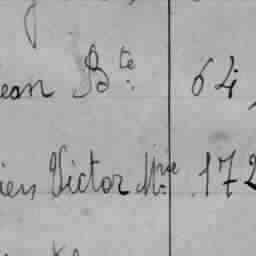 ean Bte 64,
iers Victor Mrie 172